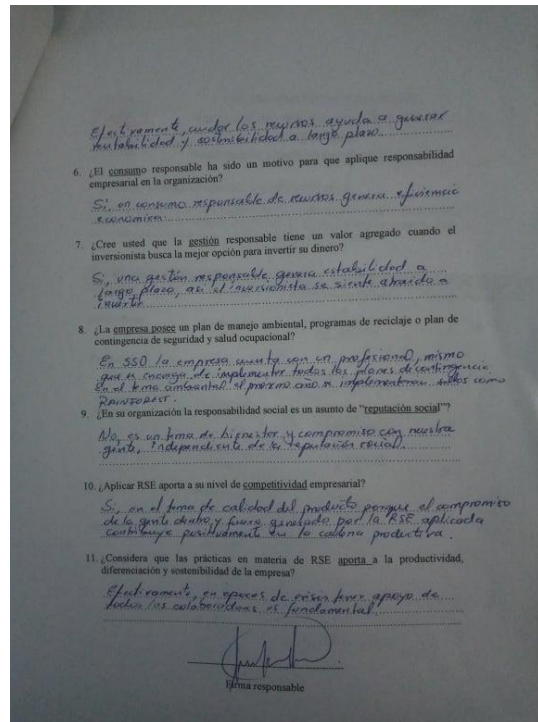 Efectivamente, cuidar los recursos ayuda a generar
rentabilidad y sostenibilidad a largo plazo.
6. ¿El consumo responsable ha sido un motivo para que aplique responsabilidad
empresarial en la organización?
Si, un consumo responsable de recursos genera eficiencia
economica.
7. ¿Cree usted que la gestión responsable tiene un valor agregado cuando el
inversionista busca la mejor opción para invertir su dinero?
Si, una gestión responsable genera estabilidad a
largo plazo, asi el inversionista se siente atraido a
invertir.
8. ¿La empresa posee un plan de manejo ambiental, programas de reciclaje o plan de
contingencia de seguridad y salud ocupacional?
En SSO la empresa cuenta con un profesional, mismo
que se encarga de implementar todos los planes de contingencia.
En el tema ambiental el proximo año se implementaran sellos como
RAINFOREST.
9. ¿En su organización la responsabilidad social es un asunto de “reputación social”?
No, es un tema de bienestar y compromiso con nuestra
gente, independiente de la reputación social.
10. ¿Aplicar RSE aporta a su nivel de competitividad empresarial?
Si, en el tema de calidad del producto porque el compromiso
de la gente dentro y fuera generado por la RSE aplicada
contribuye positivamente en la cadena productiva.
11. ¿Considera que las prácticas en materia de RSE aporta a la productividad,
diferenciación y sostenibilidad de la empresa?
Efectivamente, en epocas de crisis tener apoyo de
todos los colaboradores es fundamental.
Firma responsable